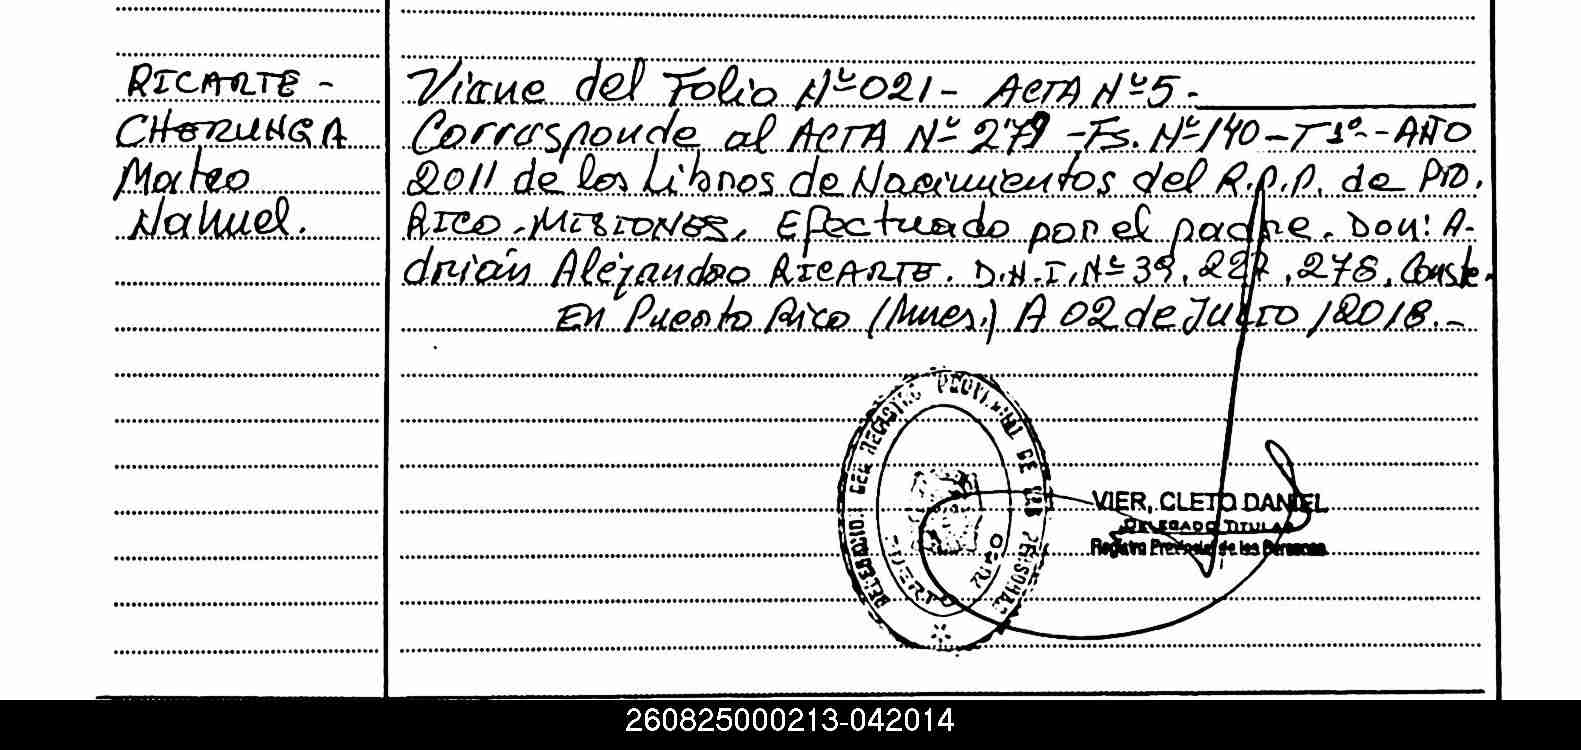 RICARTE -
CHORUNGA
Mateo
Nahuel.
Viene del Folio Nº 021 - ACTA Nº 5 -
Corresponde al ACTA Nº 279 - Fs. Nº 140 - T 1º - AÑO
2011 de los Libros de Nacimientos del R.P.P. de PTO.
RICO - MISIONES, Efectuado por el padre. Don: A-
drián Alejandro RICARTE. D.N.I. Nº 39.227.278. Conste.
En Puerto Rico (Mnes.) A 02 de JULIO /2018.-
DELEGACION DEL REGISTRO PROVINCIAL DE LAS PERSONAS
PUERTO RICO
VIER, CLETO DANIEL
DELEGADO TITULAR
Registro Provincial de las Personas
260825000213-042014